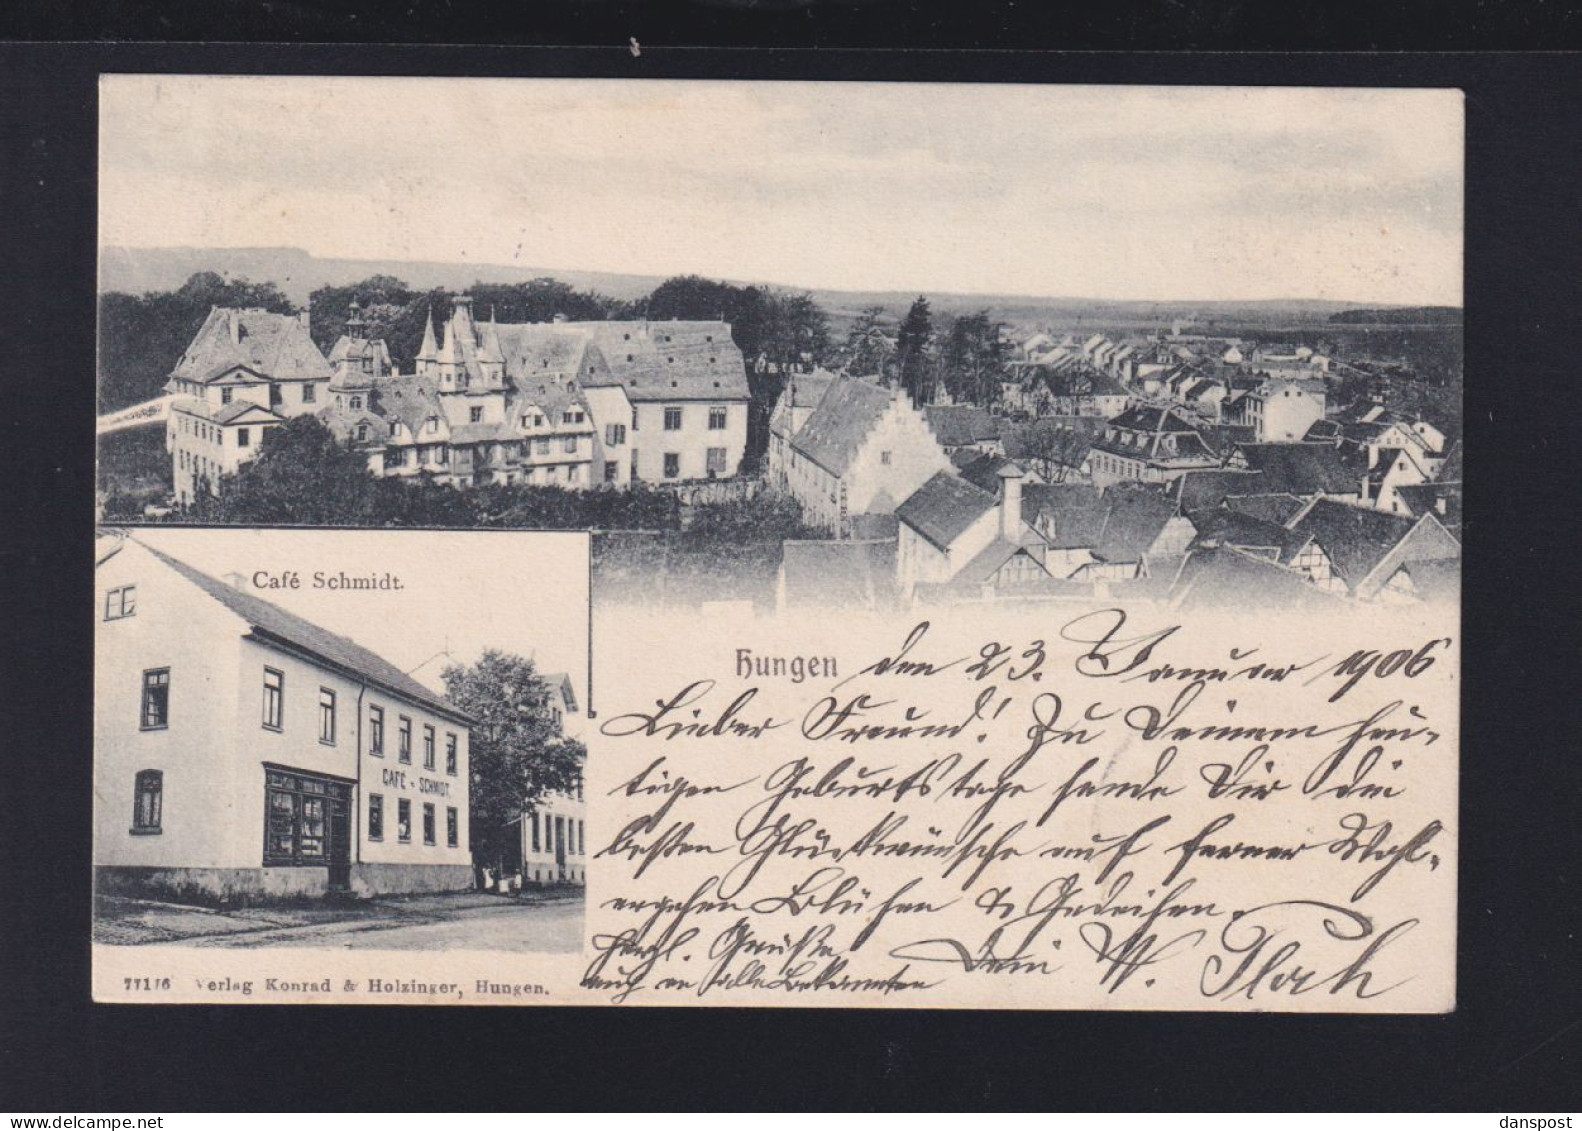 Café Schmidt.
CAFÉ - SCHMIDT.
Hungen den 23. Januar 1906
Lieber Freund! Zu Deinem heu-
tigen Geburtstage sende Dir die
besten Glückwünsche auf ferner Wohl-
ergehen Blühen & Gedeihen.
Herzl. Grüße Dein W. Flach
auch an alle Bekannten
77116 Verlag Konrad & Holzinger, Hungen.
delcampe.net
danspost